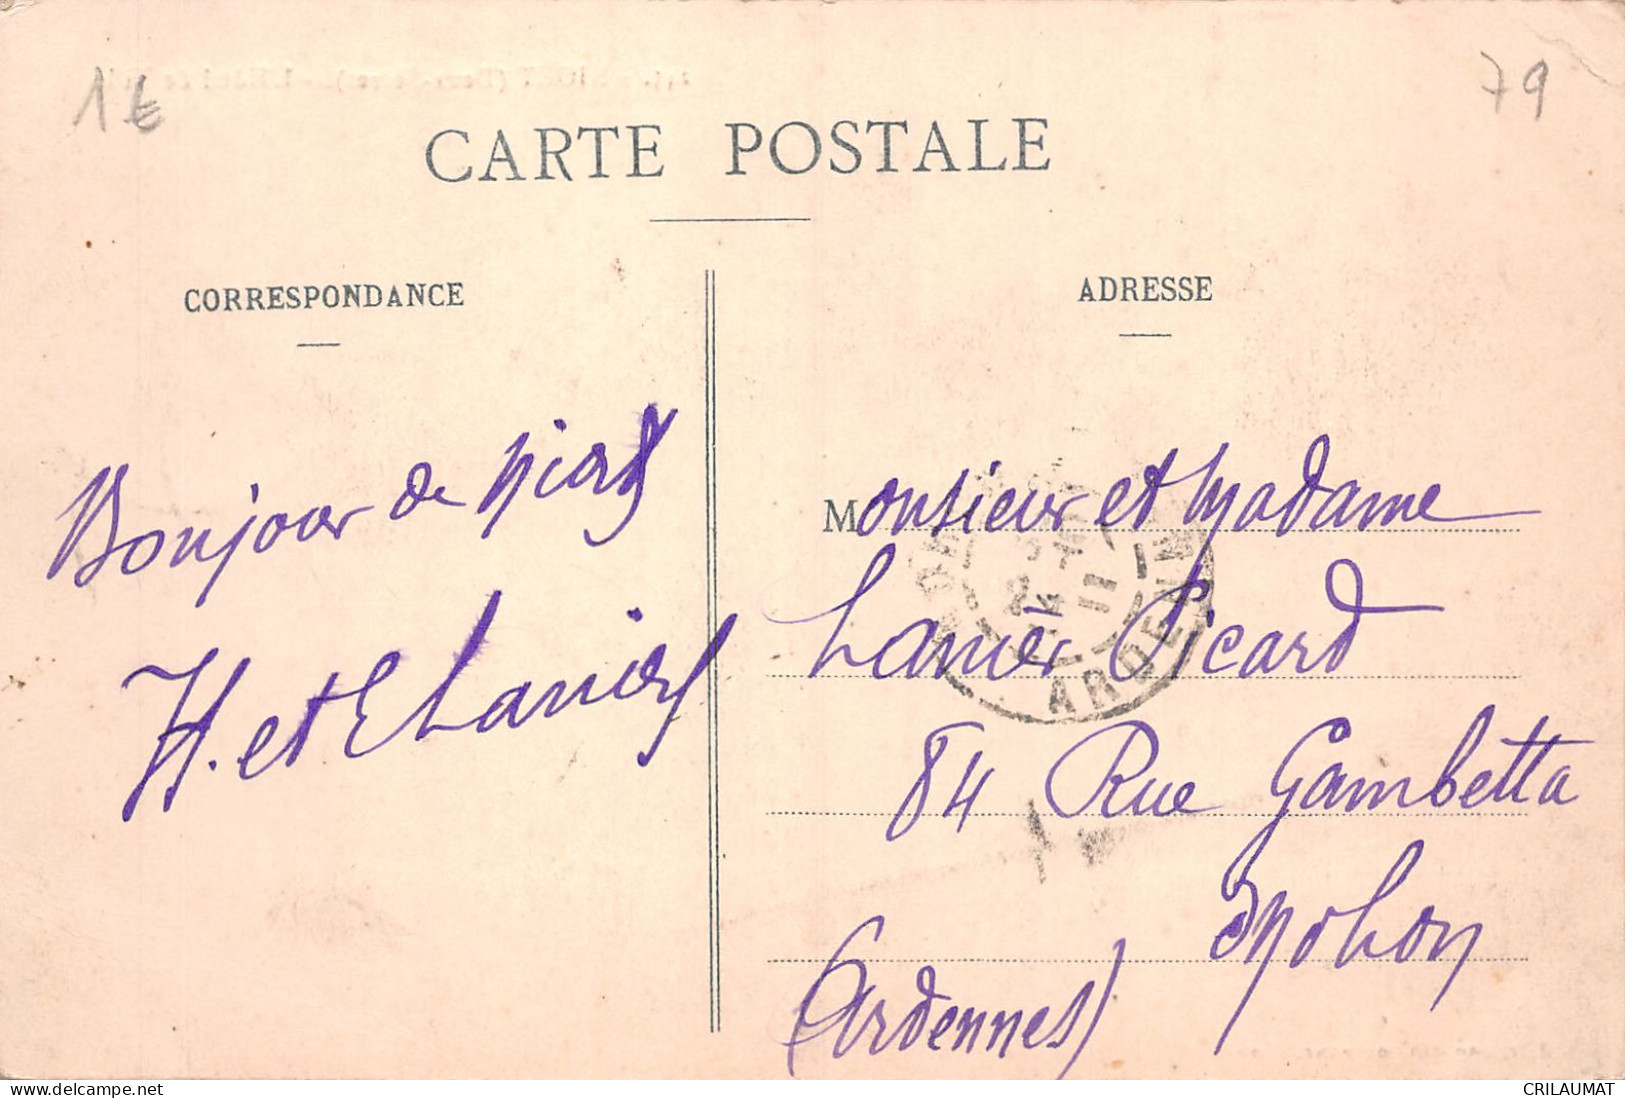 1€
79
CARTE POSTALE
CORRESPONDANCE
ADRESSE
Bonjour de Niort
H. et E Lanier
Monsieur et Madame
Lanier Picard
84 Rue Gambetta
Mohon
(Ardennes)
MOHON
11
ARDENNES
www.delcampe.net
CRILAUMAT